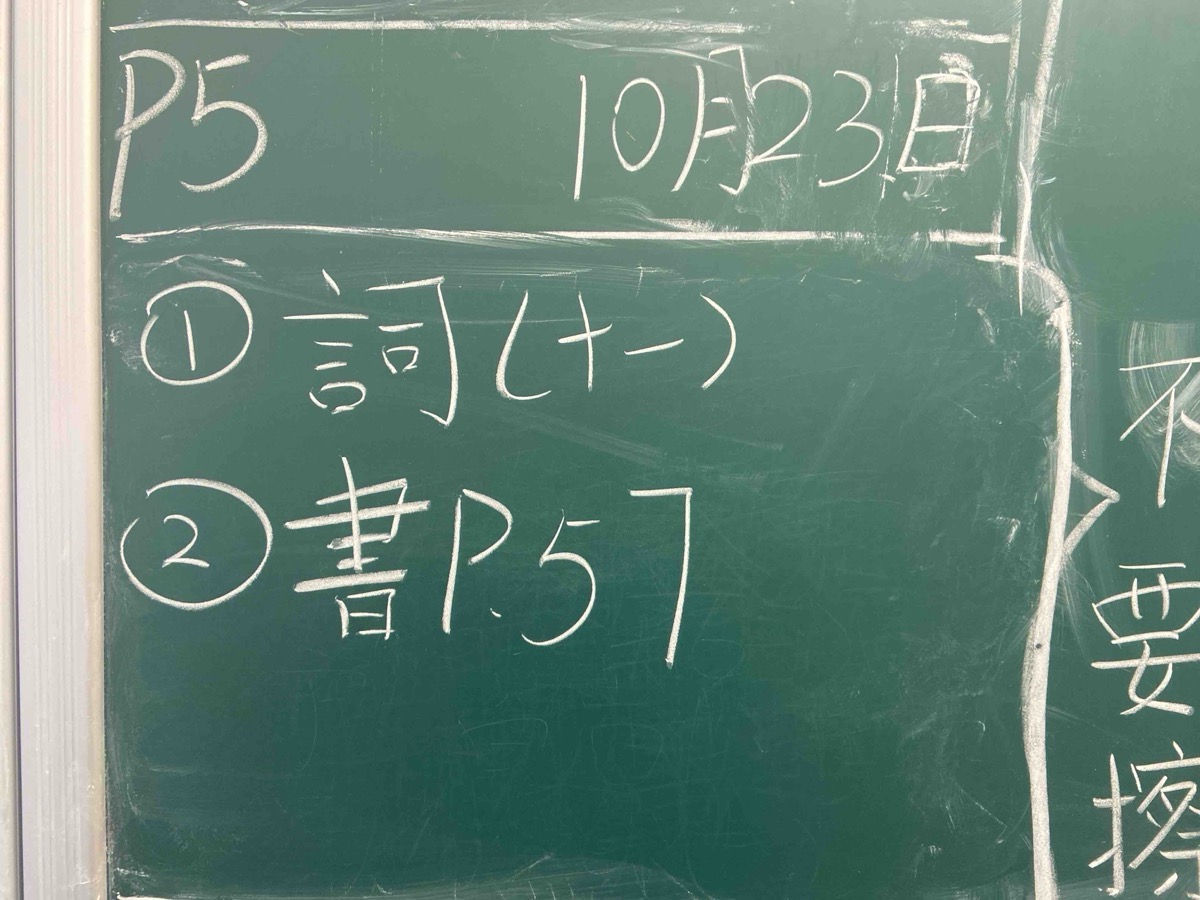 P5 10月23日
①詞(十一)
②書P.57
不
要
擦